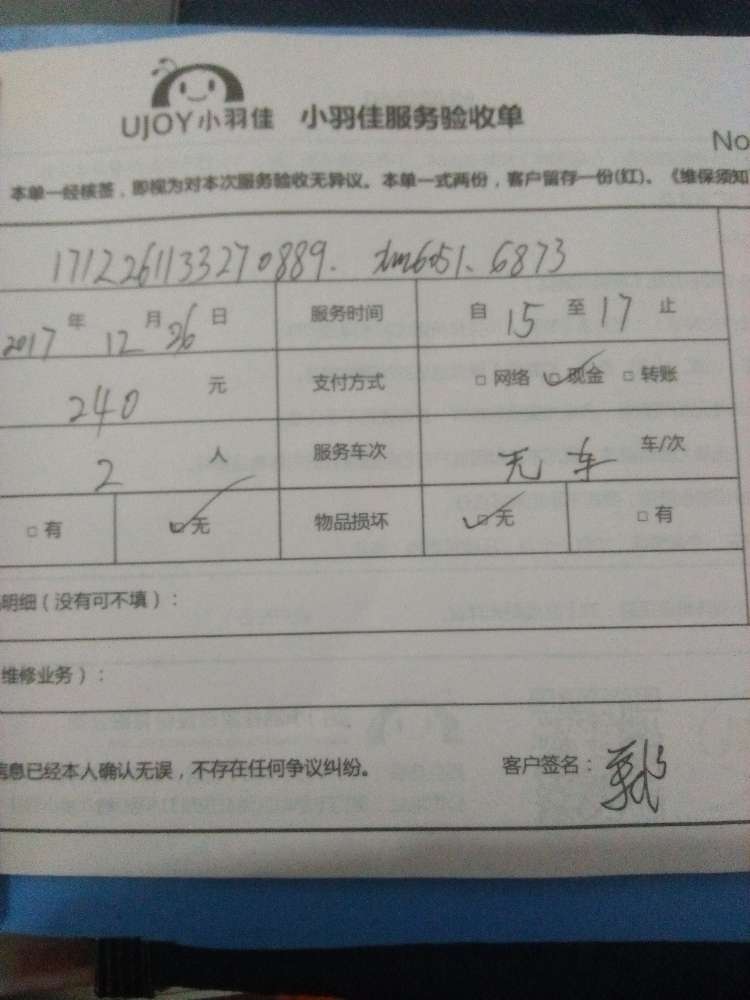 UJOY小羽佳 小羽佳服务验收单
No
本单一经核签，即视为对本次服务验收无异议。本单一式两份，客户留存一份(红)、《维保须知
1712261133270889. xm6051. 6873
2017 年 12 月 26 日 服务时间 自 15 至 17 止
240 元 支付方式 □ 网络 □ 现金 □ 转账
2 人 服务车次 无 车 车/次
□ 有 □ 无 物品损坏 □ 无 □ 有
明细（没有可不填）：
维修业务）：
信息已经本人确认无误，不存在任何争议纠纷。 客户签名：